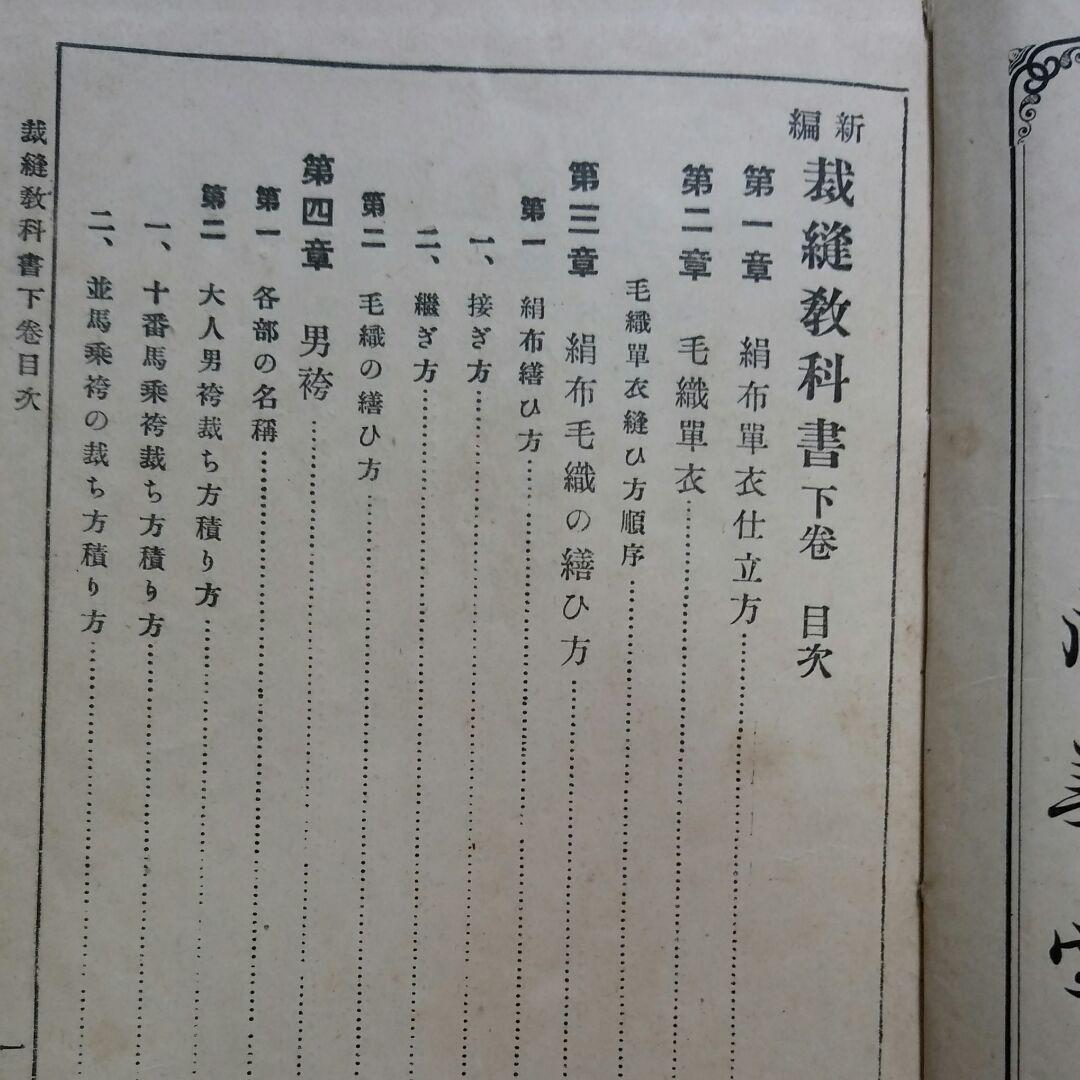 新編 裁縫教科書下卷 目次
第一章 絹布單衣仕立方
第二章 毛織單衣
毛織單衣縫ひ方順序
第三章 絹布毛織の繕ひ方
第一 絹布繕ひ方
一、接ぎ方
二、繼ぎ方
第二 毛織の繕ひ方
第四章 男袴
第一 各部の名稱
第二 大人男袴裁ち方積り方
一、十番馬乘袴裁ち方積り方
二、並馬乘袴の裁ち方積り方
裁縫教科書下卷目次
一